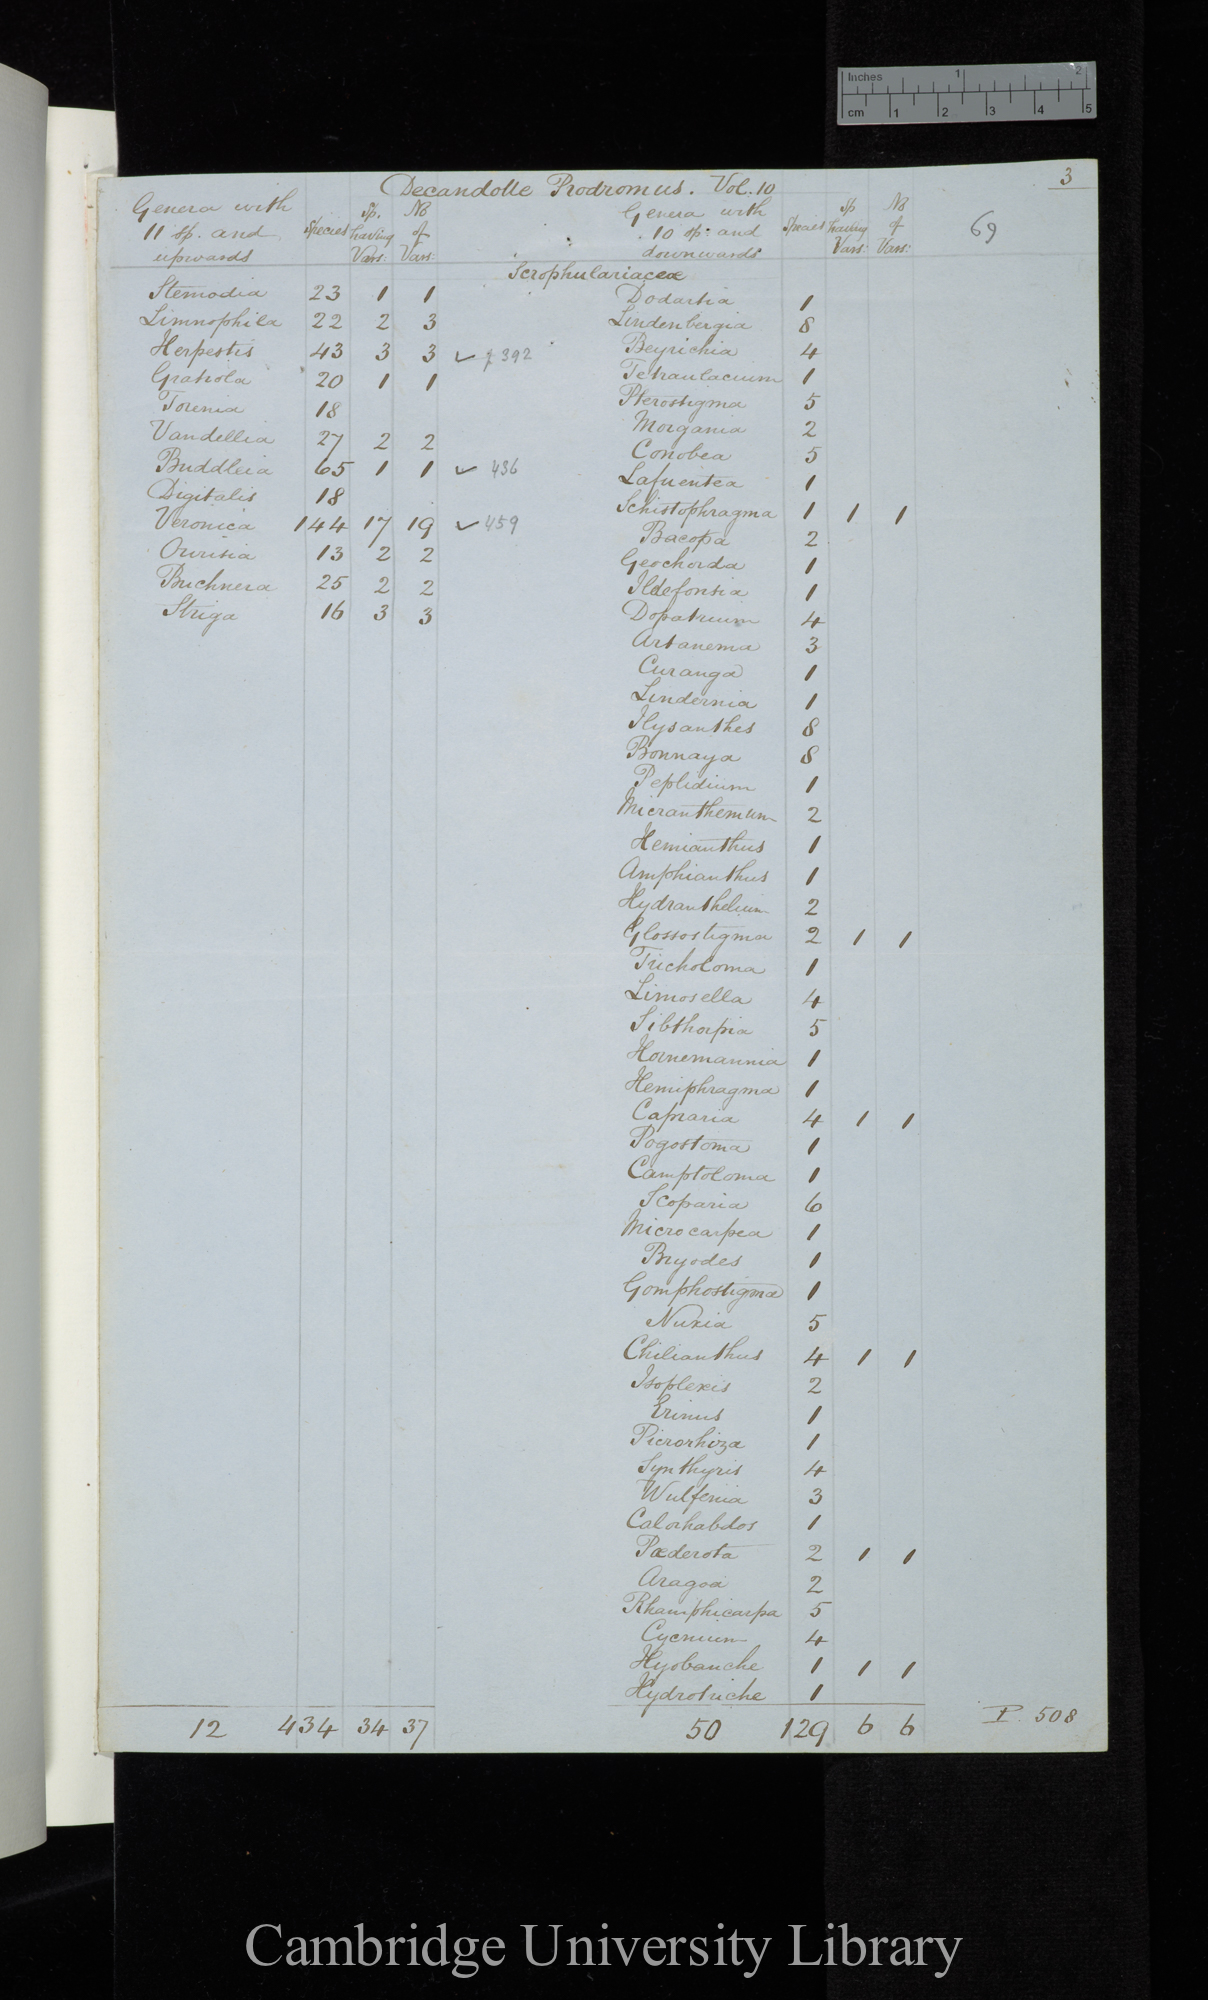 Inches 1 2
cm 1 2 3 4 5
3
Decandolle Prodromus. Vol. 10
Genera with 11 sp. and upwards Species Sp. having Vars: No of Vars:
Genera with 10 sp: and downwards Species Sp having Vars: No of Vars:
69
Scrophulariaceæ
Stemodia 23 1 1
Limnophila 22 2 3
Herpestis 43 3 3 ✓ p 392
Gratiola 20 1 1
Torenia 18
Vandellia 27 2 2
Buddleia 65 1 1 ✓ 436
Digitalis 18
Veronica 144 17 19 ✓ 459
Ourisia 13 2 2
Buchnera 25 2 2
Striga 16 3 3
12 434 34 37
Dodartia 1
Lindenbergia 8
Beyrichia 4
Tetraulacium 1
Pterostigma 5
Morgania 2
Conobea 5
Lafuentea 1
Schistophragma 1 1 1
Bacopa 2
Geochorda 1
Ildefonsia 1
Dopatrium 4
Artanema 3
Curanga 1
Lindernia 1
Ilysanthes 8
Bonnaya 8
Peplidium 1
Micranthemum 2
Hemianthus 1
Amphianthus 1
Hydranthelium 2
Glossostigma 2 1 1
Tricholoma 1
Limosella 4
Sibthorpia 5
Hornemannia 1
Hemiphragma 1
Capraria 4 1 1
Pogostoma 1
Camptoloma 1
Scoparia 6
Microcarpea 1
Bryodes 1
Gomphostigma 1
Nuxia 5
Chilianthus 4 1 1
Isoplexis 2
Erinus 1
Picrorhiza 1
Synthyris 4
Wulfenia 3
Calorhabdos 1
Pæderota 2 1 1
Aragoa 2
Rhamphicarpa 5
Cycnium 4
Hyobanche 1 1 1
Hydrotriche 1
50 129 6 6
P. 508
Cambridge University Library